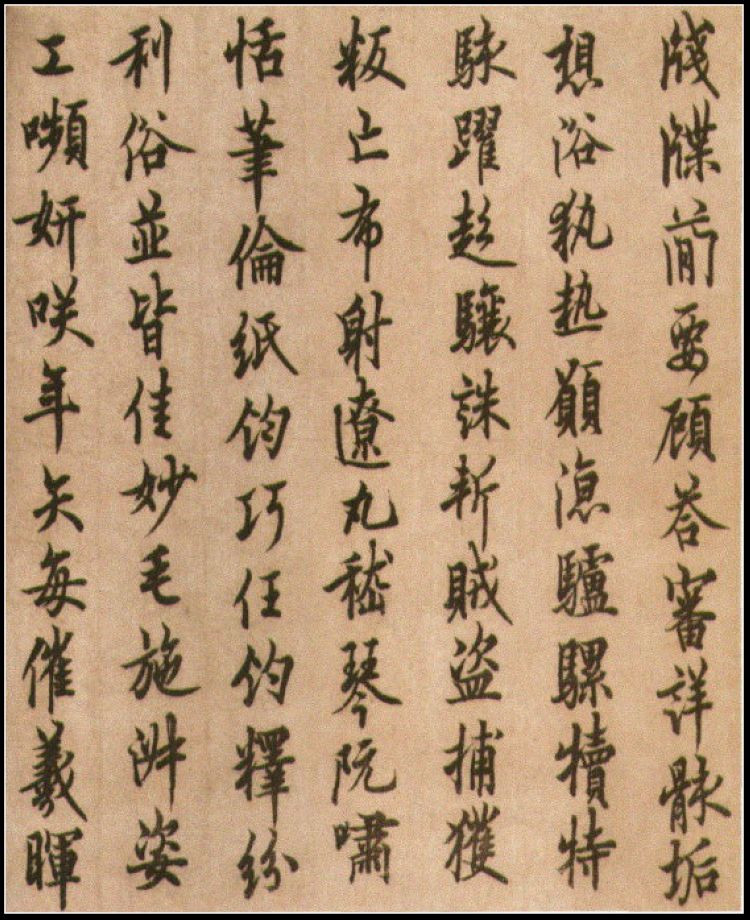 牋牒簡要顧荅審詳骸垢
想浴執熱願涼驢騾犢特
駭躍超驤誅斬賊盜捕獲
叛亡布射遼丸嵇琴阮嘯
恬筆倫紙鈞巧任鈞釋紛
利俗並皆佳妙毛施淑姿
工嚬妍咲年矢每催羲暉